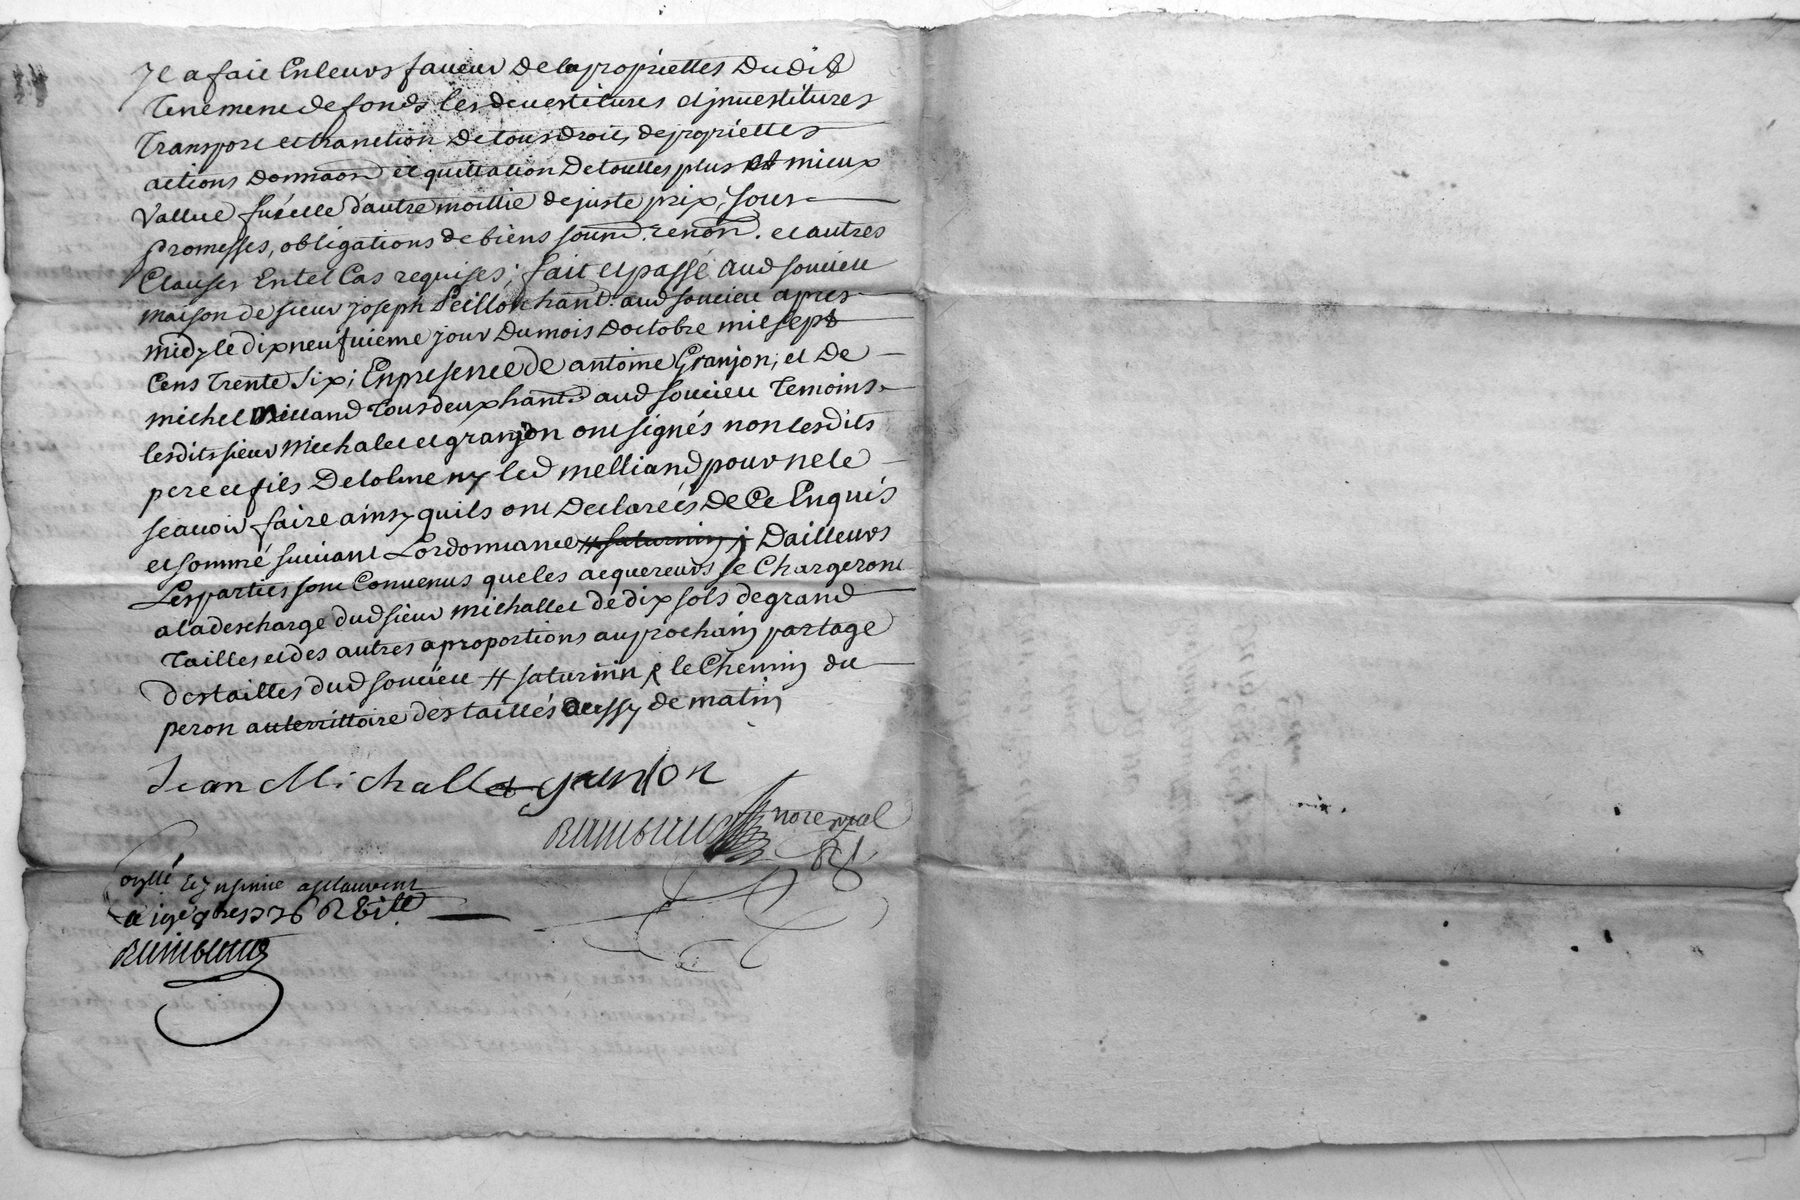 Il a fait En leurs faveur De la propriettes Dudit
Tenement de fonds les devestitures et jnvestitures
Transport et tranction De tous Droits de propriettes
actions Donnaon et quittation De touttes plus et mieux
Vallue fuselle d'autre moittie de juste prix, sous
promesses, obligations de biens soum. renon. et autres
Clauses En tel Cas requises; fait et passé aud soucieu
maison de sieur joseph Peillon hant. aud soucieu apres
midy le dix neufvieme jour Du mois Doctobre mil sept
Cens Trente Six; En presence de antoine Granjon; et De
michel Milland Tous deux hant. aud soucieu Temoins
lesdits sieur Michalet et granjon ont signés non lesdits
pere et fils Delolme ny led melliand pour ne le
scavoir faire ainsy quils ont Declareés De Ce Enquis
et sommé suivant Lordonnance # saturnin ; Dailleurs
Les parties sont Convenus que les acquereurs se Chargeront
a la descharge dud sieur michallet de dix sols de grand
Tailles et des autres a proportions au prochain partage
des tailles dud soucieu # saturnin & le Chemin du
peron au territtoire des taillés aussy de matin
Jean Michallet granjon
notе royal
Collé